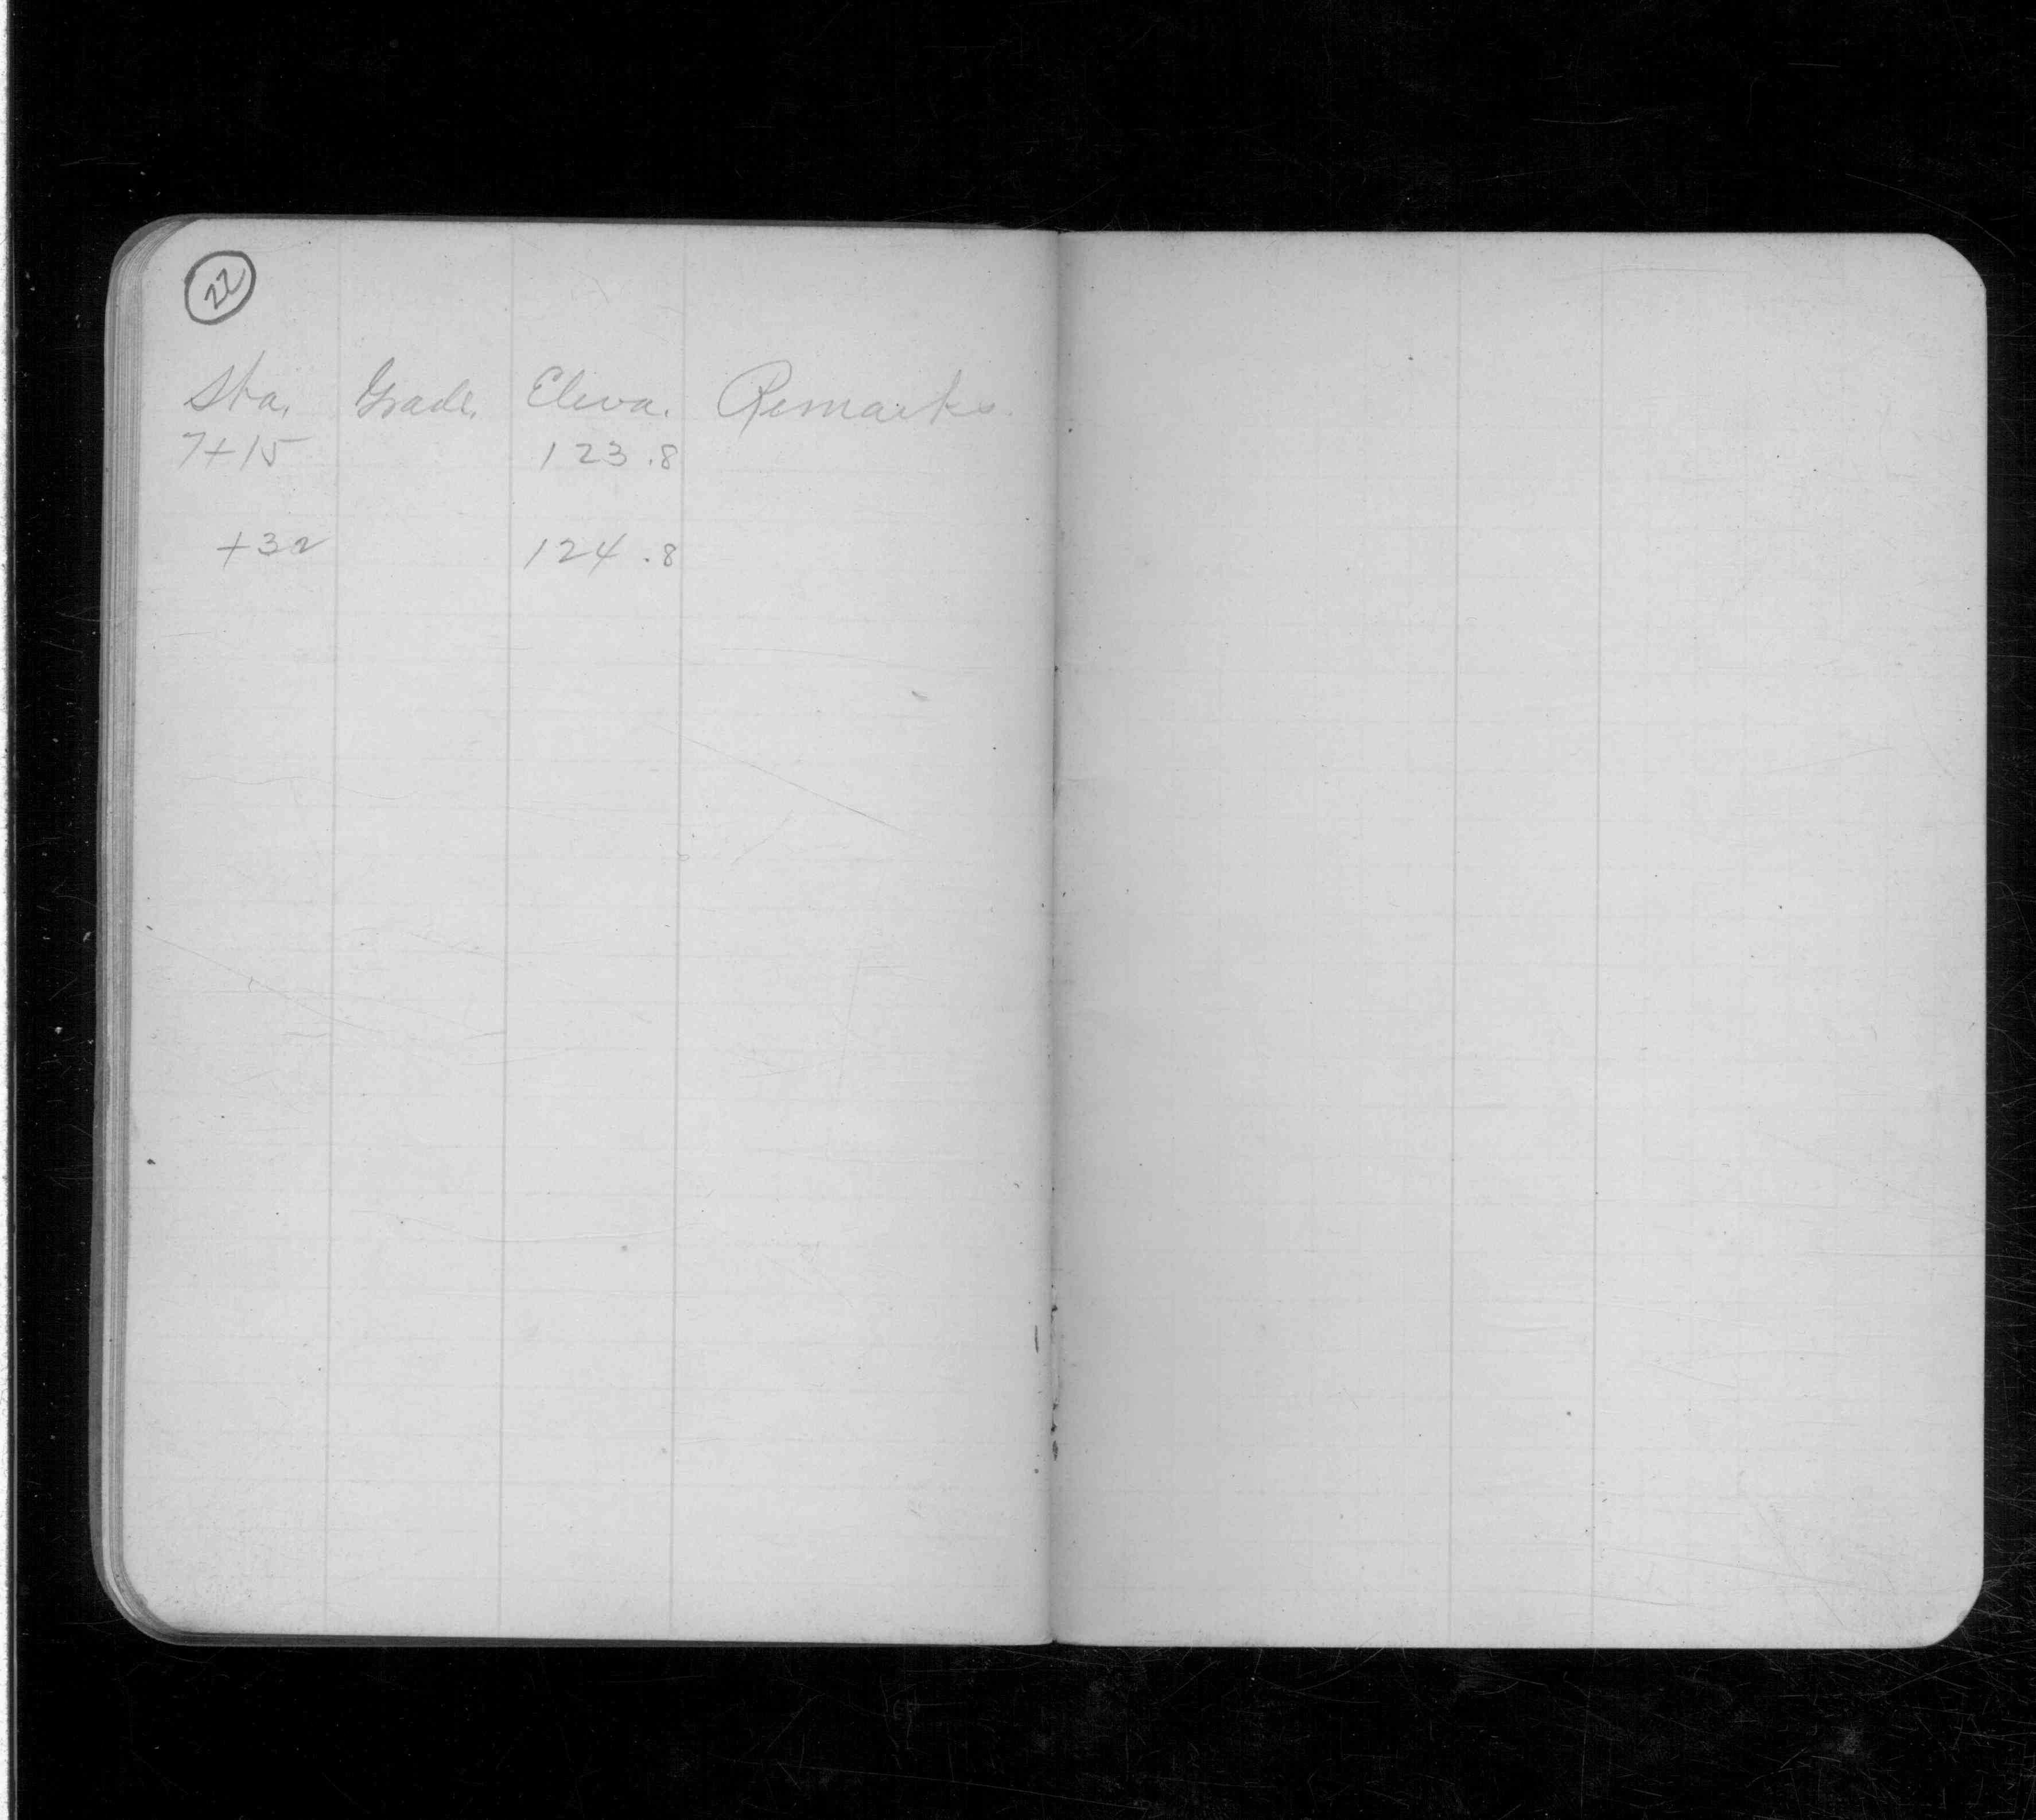 22
Sta. Grade. Eleva. Remarks.
7+15 123.8
+32 124.8